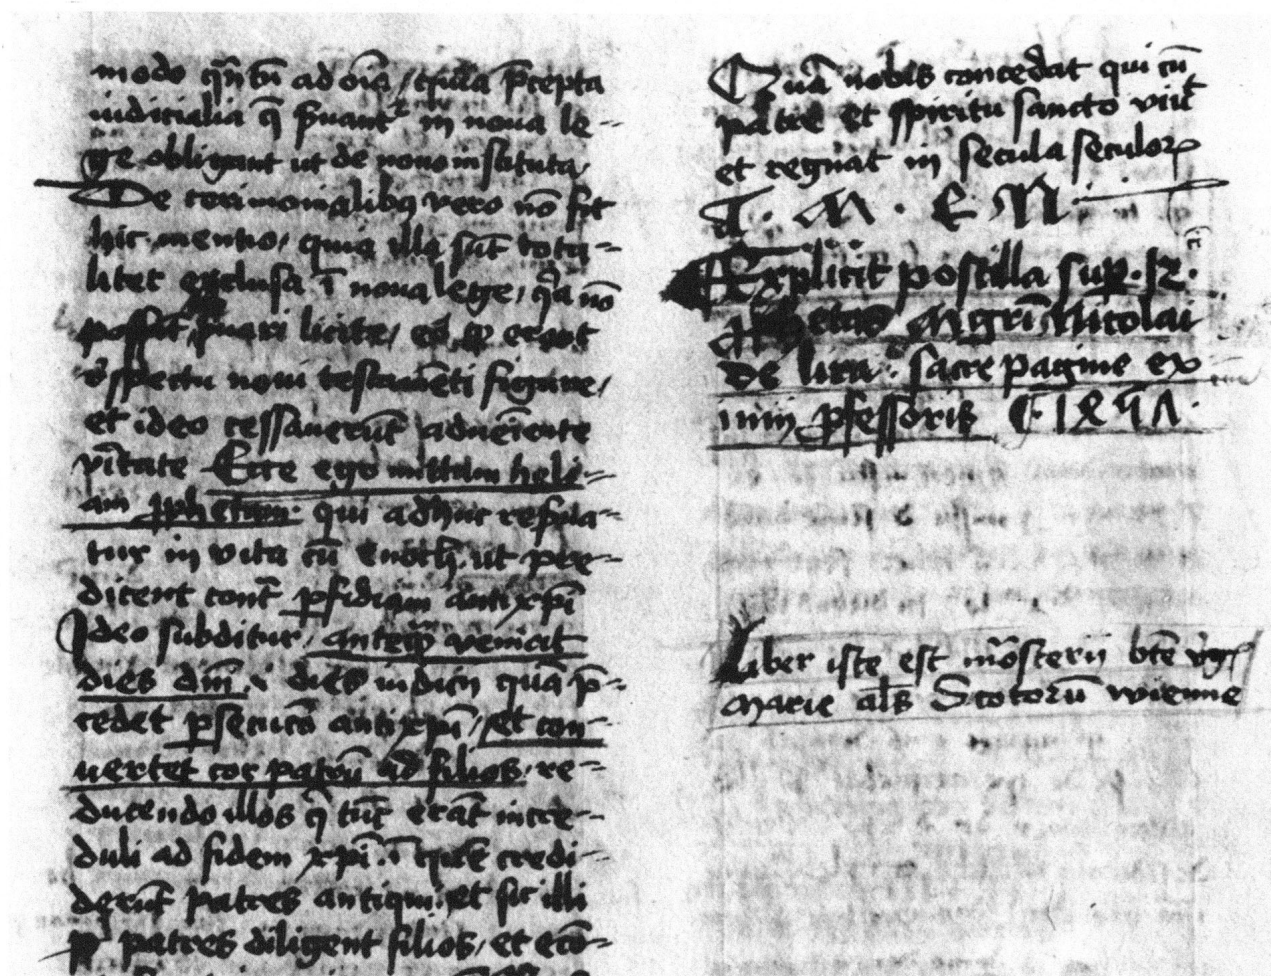 modo qn̄tū ad oīa / quia p̄cepta
iudicialia q̄ p̄uant᷑ in noua le=
ge obligant ut de nouo instituta /
De cerimonialibꝫ vero nō fit
hic mentio / quia illa sūt tota=
liter exclusa ī noua lege / q̄a nō
possūt ẜuari licite / eo ꝙ erāt
respectu noui testamēti figure /
et ideo cessauerūt adueniente
v̄itate Ecce ego mittam heli=
am ꝓphetam · qui adhuc resͣua=
tur in vita cū enoch · ut pre=
dicent cont̄ ꝑfidiam anti xp̄i
Ideo subditur / anteqͣ veniat
dies dn̄i · i dies iudicij quā p̄=
cedet ꝑsecucō anti xp̄i / et con=
uertet cor patrū ad filios / re=
ducendo illos q̄ tūc erāt incre=
duli ad fidem xp̄i · ī quē credi=
derūt patres antiqui · et sic illi
patres diligent filios / et ecō=
Quā nobis concedat qui cū
patre et spiritu sancto viuit
et regnat in secula seculoꝝ
A · M · E N ·
Explicit postilla suꝑ · 12 ·
ꝓphetas Mgrī Nicolai
de lira · sacre pagine ex
imij ꝓfessoris
Liber iste est mōsterij btē v̄gīs
Marie al̄s Scotorū wienne